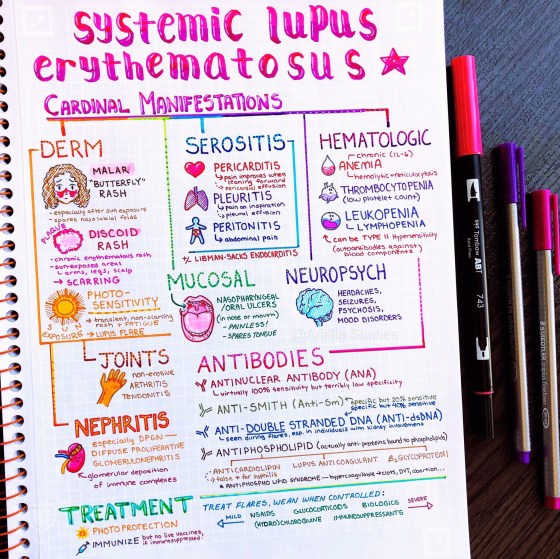 systemic lupus
erythematosus
CARDINAL MANIFESTATIONS
DERM
MALAR
"BUTTERFLY"
RASH
- especially after sun exposure
- spares nasolabial folds
PLAQUE
DISCOID
RASH
- chronic erythematous rash
- sun-exposed areas
↳ arms, legs, scalp
→ SCARRING
PHOTO-
SENSITIVITY
→ transient, non-scarring
rash + FATIGUE
SUN
EXPOSURE → LUPUS FLARE
SEROSITIS
PERICARDITIS
↳ pain improves when
leaning forward
↳ pericardial effusion
PLEURITIS
↳ pain on inspiration
↳ pleural effusion
PERITONITIS
↳ abdominal pain
+/- LIBMAN-SACKS ENDOCARDITIS
HEMATOLOGIC
chronic (IL-6)
ANEMIA
hemolytic + reticulocytosis
THROMBOCYTOPENIA
(low platelet count)
LEUKOPENIA
↳ LYMPHOPENIA
* can be TYPE II Hypersensitivity
(autoantibodies against
blood components)
MUCOSAL
NASOPHARYNGEAL
/ORAL ULCERS
(in nose or mouth)
- PAINLESS!
- SPARES TONGUE
NEUROPSYCH
HEADACHES,
SEIZURES,
PSYCHOSIS,
MOOD DISORDERS
JOINTS
non-erosive
ARTHRITIS
TENDONITIS
NEPHRITIS
especially DPGN -
DIFFUSE PROLIFERATIVE
GLOMERULONEPHRITIS
↳ glomerular deposition
of immune complexes
ANTIBODIES
ANTINUCLEAR ANTIBODY (ANA)
↳ virtually 100% sensitivity but terribly low specificity
ANTI-SMITH (Anti-Sm)
specific but 20% sensitive
specific but 40% sensitive
ANTI-DOUBLE STRANDED DNA (ANTI-dsDNA)
↳ seen during flares, esp. in individuals with kidney involvement
ANTIPHOSPHOLIPID (actually anti-proteins bound to phospholipids)
ANTICARDIOLIPIN
LUPUS ANTICOAGULANT
β₂ GLYCOPROTEIN I
↳ false + for syphilis
* ANTIPHOSPHOLIPID SYNDROME → hypercoagulable → clots, DVT, abortion...
TREATMENT
PHOTOPROTECTION
IMMUNIZE
but no live vaccines,
if immunosuppressed.
TREAT FLARES, WEAN WHEN CONTROLLED:
MILD
NSAIDS
GLUCOCORTICOIDS
BIOLOGICS
SEVERE
(HYDROXY)CHLOROQUINE
IMMUNOSUPPRESSANTS
Tombow ABT
743
STAEDTLER triplus fineliner